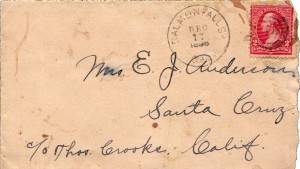 SALMON FALLS
DEC
17
Mrs. E. J. Anderson
Santa Cruz
c/o Thos. Crooks. Calif.